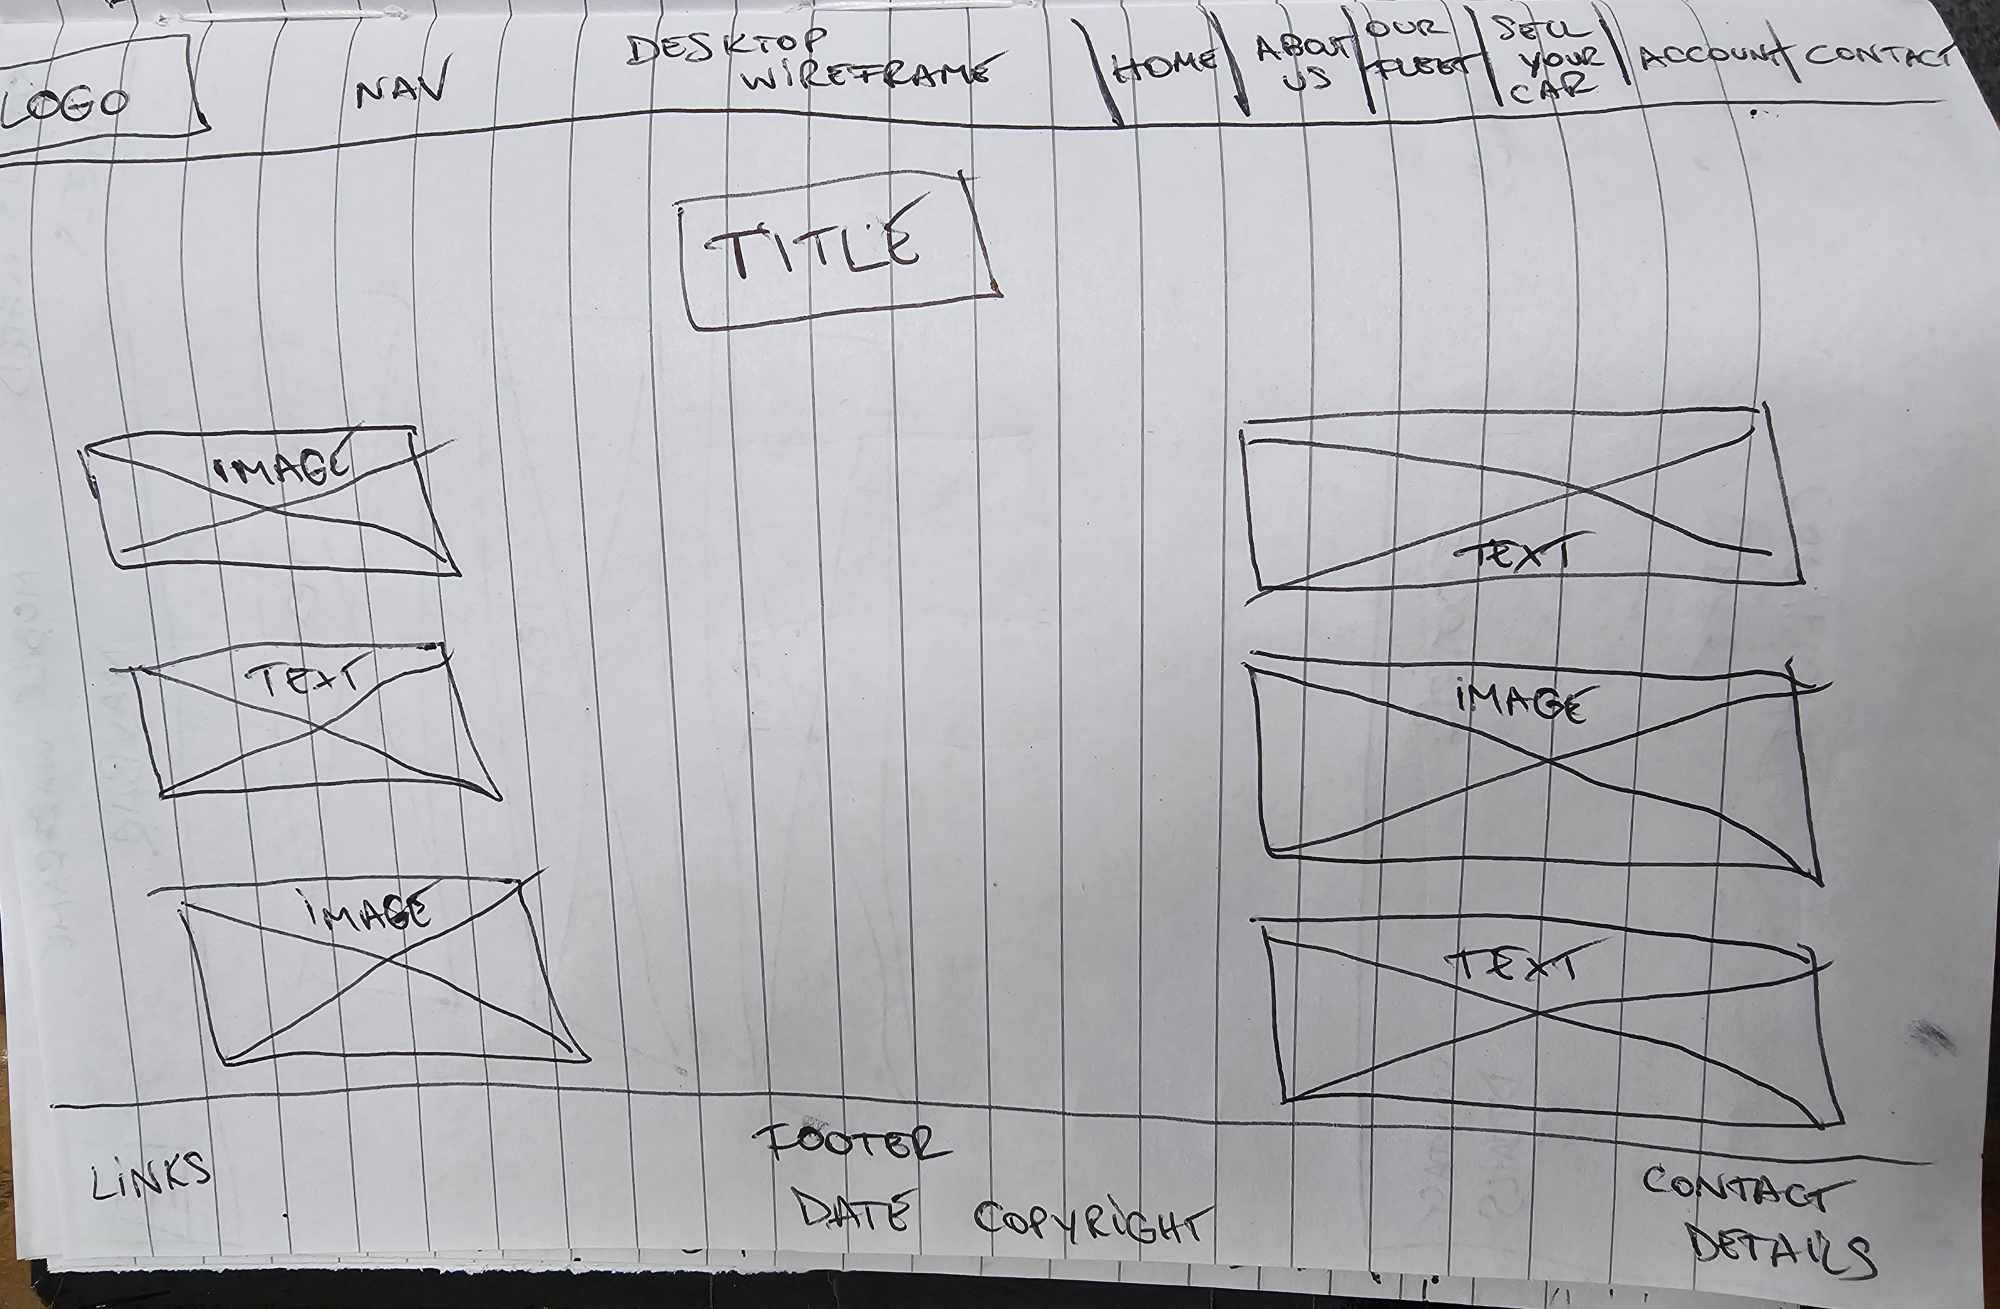 LOGO
NAV
DESKTOP
WIREFRAME
HOME
ABOUT
US
OUR
FLEET
SELL
YOUR
CAR
ACCOUNT
CONTACT
TITLE
IMAGE
TEXT
TEXT
IMAGE
IMAGE
TEXT
LINKS
FOOTER
DATE COPYRIGHT
CONTACT
DETAILS